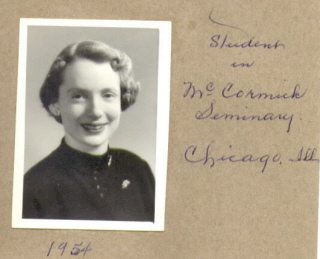 Student
in
McCormick
Seminary.
Chicago, Ill
1954